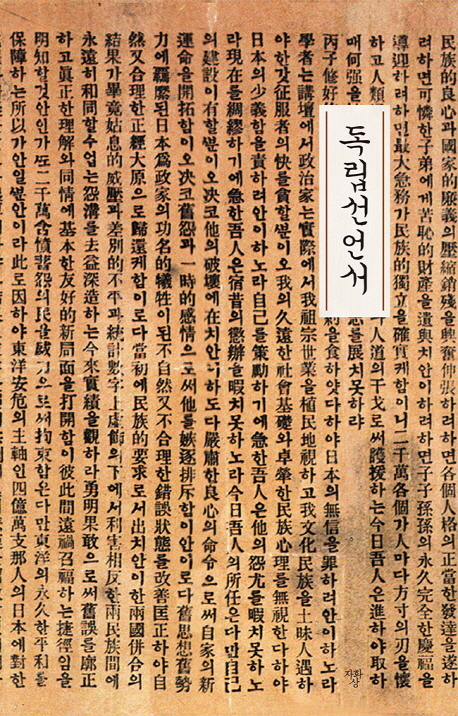 독립선언서
民族的良心과國家的廉義의壓縮銷殘을興奮伸張하려하면各個人格의正當한發達을遂하
려하면可憐한子弟에게苦恥的財產을遺與치안이하려하면子子孫孫의永久完全한慶福을
導迎하려하면最大急務가民族的獨立을確實케함이니二千萬各個가人마다方寸의刃을懷
하고人類 人道의干戈로써護援하는今日吾人은進하야取하
매何强을 志를展치못하랴
丙子修好 約을食하얏다하야日本의無信을罪하려안이하노라
學者는講壇에서政治家는實際에서我祖宗世業을植民地視하고我文化民族을土昧人遇하
야한갓征服者의快를貪할뿐이오我의久遠한社會基礎와卓犖한民族心理를無視한다하야
日本의少義함을責하려안이하노라自己를策勵하기에急한吾人은他의怨尤를暇치못하노
라現在를綢繆하기에急한吾人은宿昔의懲辦을暇치못하노라今日吾人의所任은다만自己
의建設이有할뿐이오决코他의破壞에在치안이하도다嚴肅한良心의命令으로써自家의新
運命을開拓함이오决코舊怨과一時的感情으로써他를嫉逐排斥함이안이로다舊思想舊勢
力에羈縻된日本爲政家의功名的犧牲이된不自然又不合理한錯誤狀態를改善匡正하야自
然又合理한正經大原으로歸還케함이로다當初에民族的要求로서出치안이한兩國併合의
結果가畢竟姑息的威壓과差別的不平과統計數字上虛飾의下에서利害相反한兩民族間에
永遠히和同할수업는怨溝를去益深造하는今來實績을觀하라勇明果敢으로써舊誤를廓正
하고眞正한理解와同情에基本한友好的新局面을打開함이彼此間遠禍召福하는捷徑임을
明知할것안인가또二千萬含憤蓄怨의民을威力으로써拘束함은다만東洋의永久한平和를
保障하는所以가안일뿐안이라此로因하야東洋安危의主軸인四億萬支那人의日本에對한
자화상